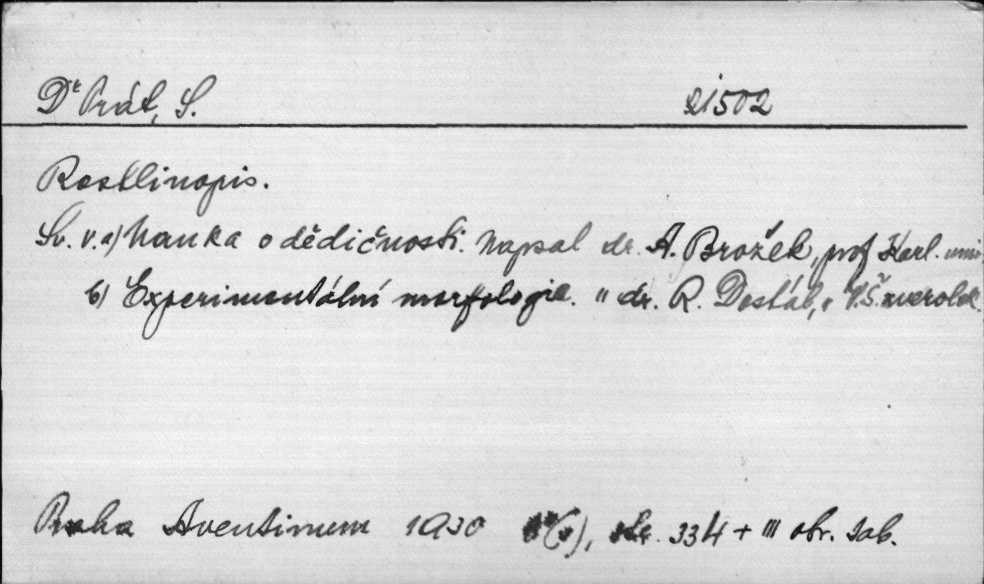 Dr Prát, S. 21502
Rostlinopis.
Sv. V. a) Nauka o dědičnosti. Napsal dr. A. Brožek, prof Karl. univ.
b) Experimentální morfologie. " dr. R. Dostál, " V.Š. zvěrolék.
Praha Aventinum 1930 str. 334 + III obr. tab.